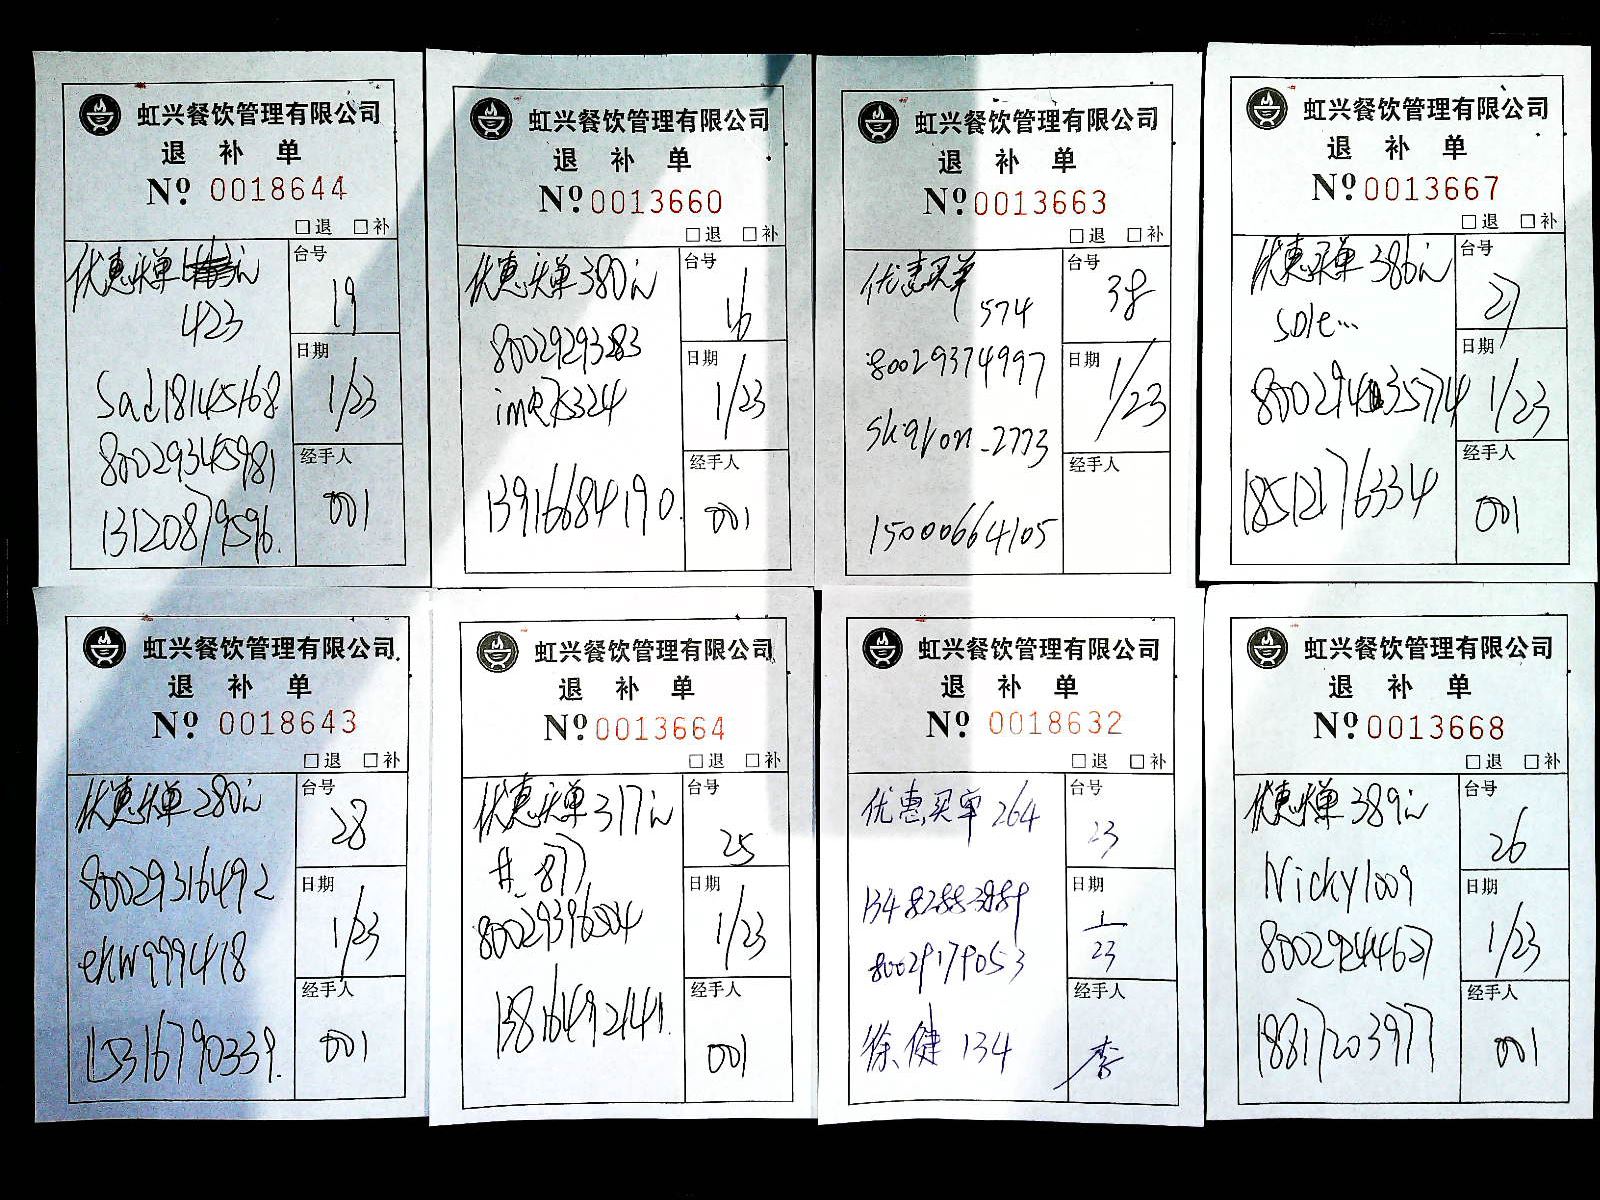 虹兴餐饮管理有限公司
退 补 单
Nº 0018644
□退 □补
优惠买单
423
Sad18145168
800293455981
13120879596.
台号
19
日期
1/23
经手人
001
虹兴餐饮管理有限公司
退 补 单
Nº 0013660
□退 □补
优惠买单 380元
80029293283
13916684190
台号
16
日期
1/23
经手人
001
虹兴餐饮管理有限公司
退 补 单
Nº 0013663
□退 □补
优惠买单
574
80029374997
15000664105
台号
38
日期
1/23
经手人
虹兴餐饮管理有限公司
退 补 单
Nº 0013667
□退 □补
优惠买单 386元
sole...
18512176334
台号
27
日期
1/23
经手人
001
虹兴餐饮管理有限公司
退 补 单
Nº 0018643
□退 □补
优惠买单 280元
80029316492
ekw9994418
15316790339.
台号
28
日期
1/23
经手人
001
虹兴餐饮管理有限公司
退 补 单
Nº 0013664
□退 □补
优惠买单 317元
80029396504
13816492441.
台号
25
日期
1/23
经手人
001
虹兴餐饮管理有限公司
退 补 单
Nº 0018632
□退 □补
优惠买单 264
13482883989
80029179053
徐健 134
台号
23
日期
1
23
经手人
李
虹兴餐饮管理有限公司
退 补 单
Nº 0013668
□退 □补
优惠买单 389元
Nicky1009
80029244627
18817203977
台号
26
日期
1/23
经手人
001